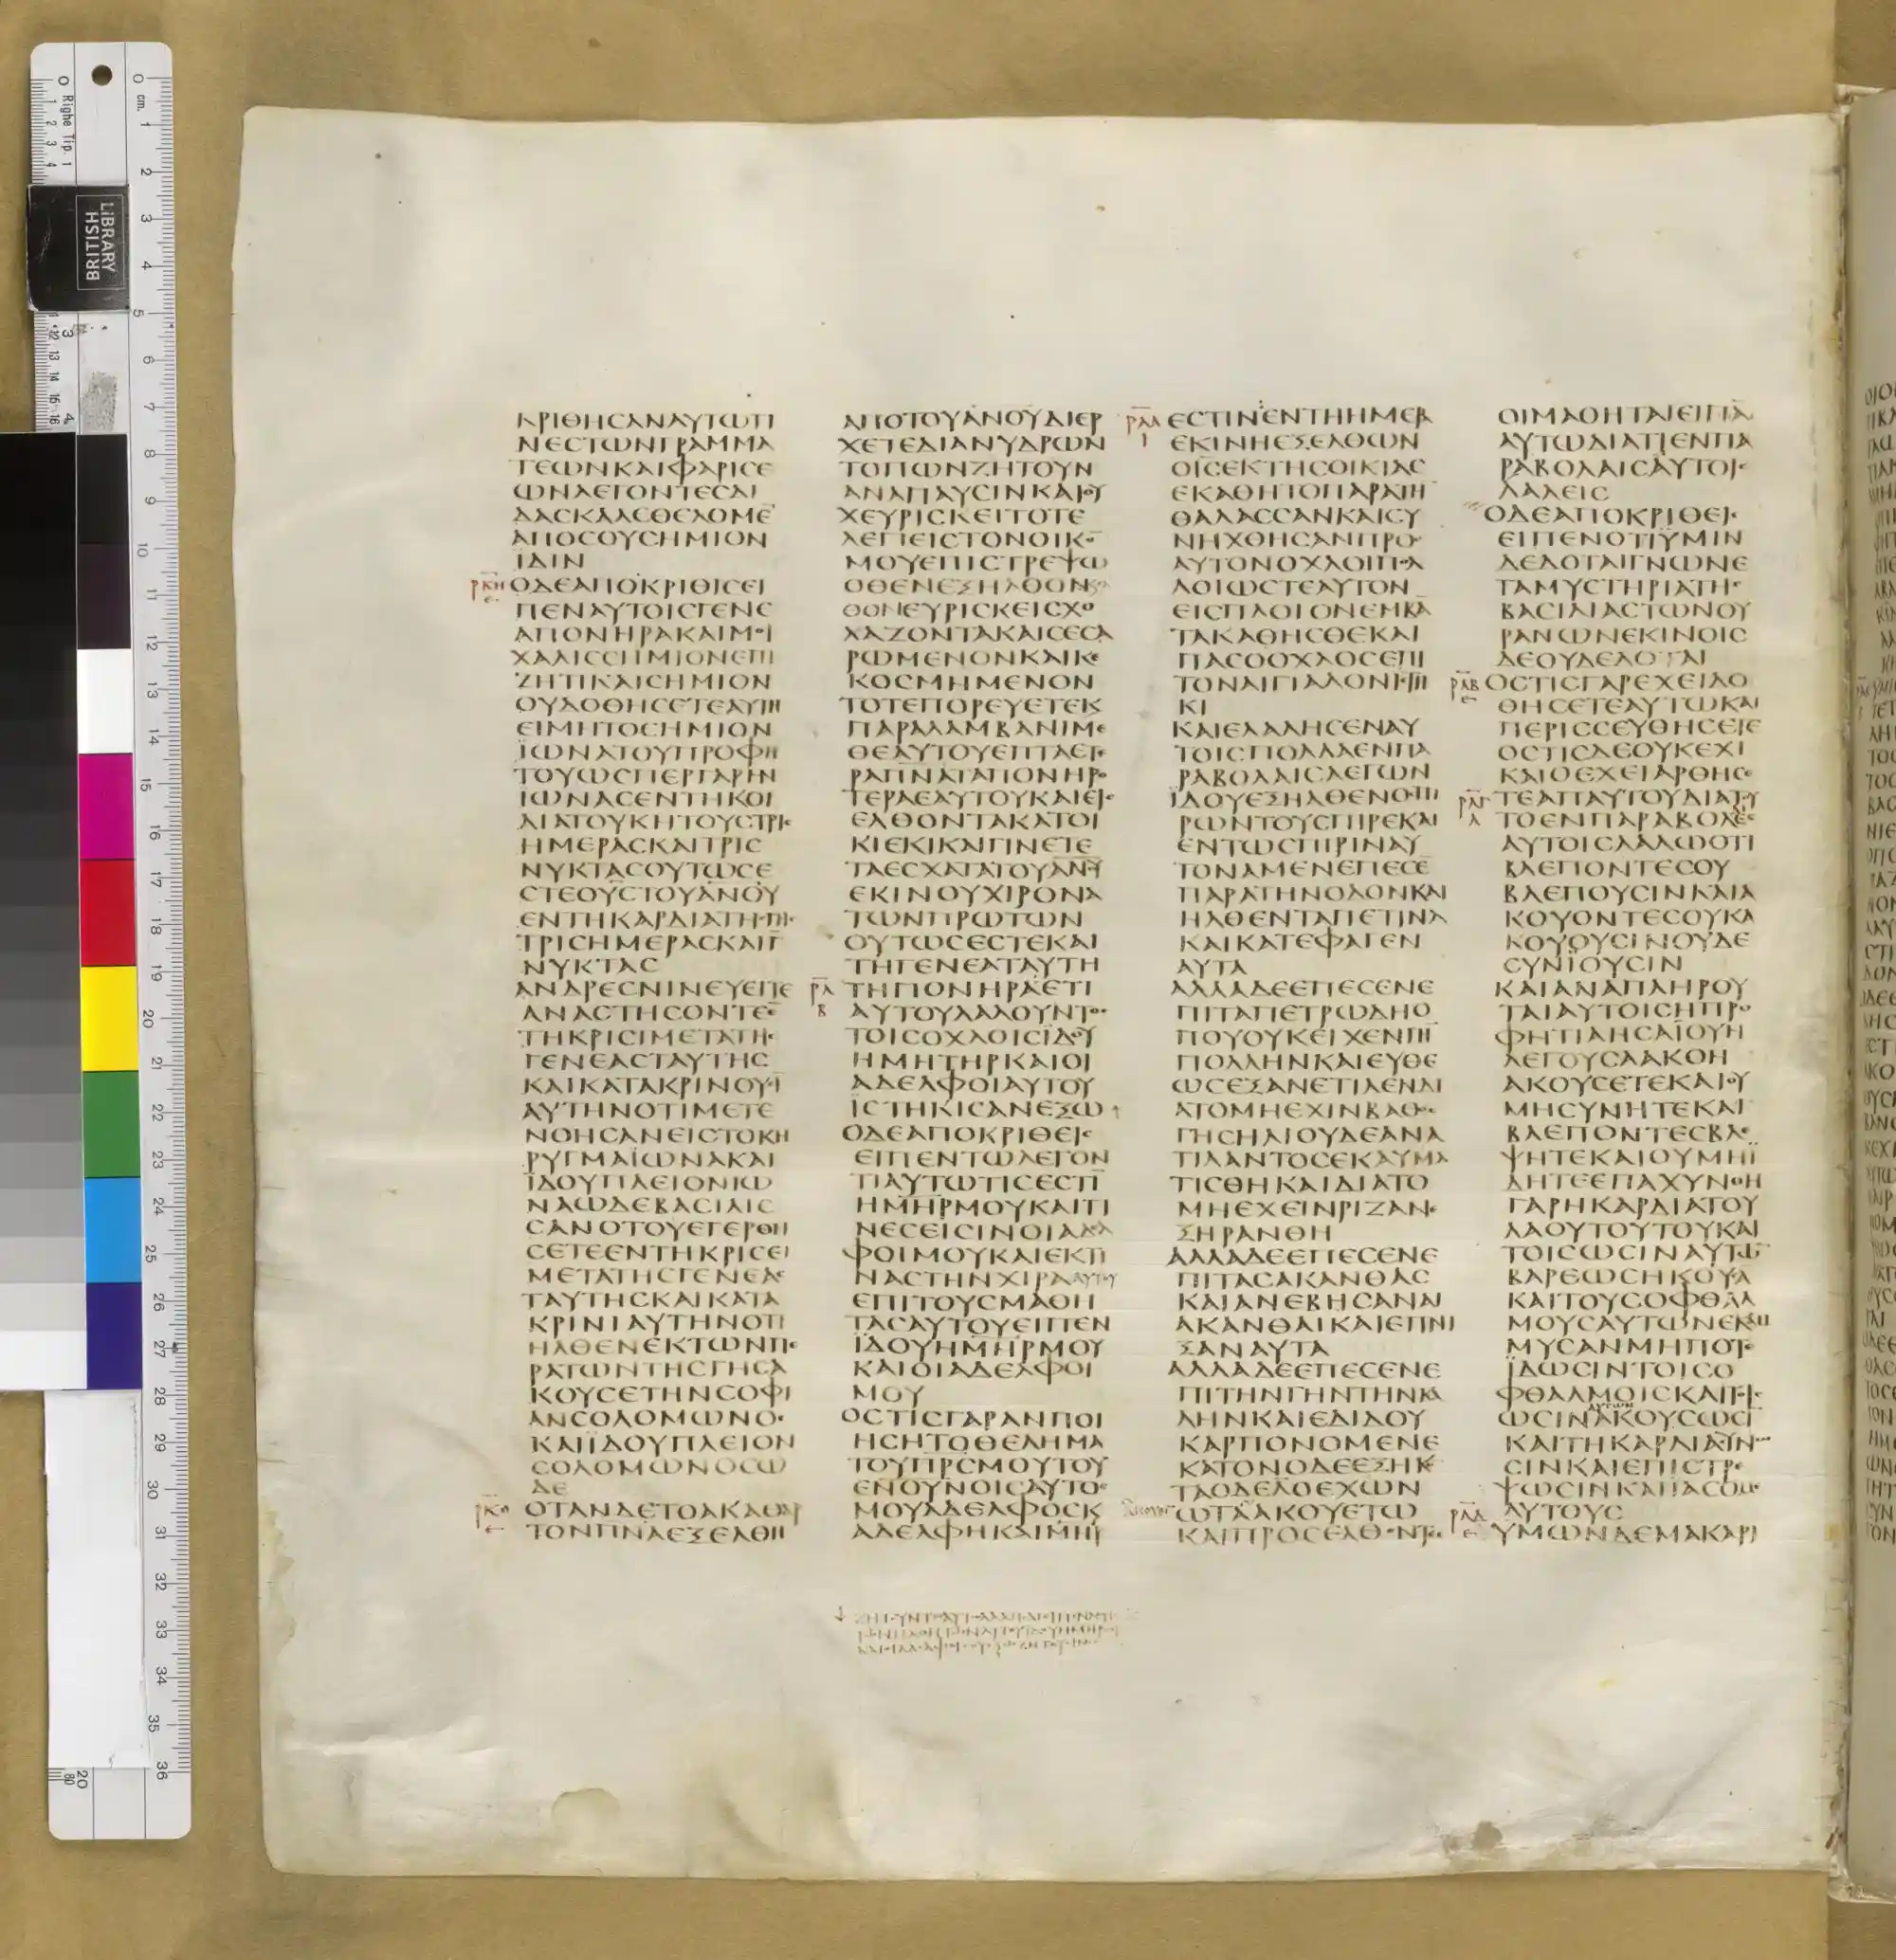 ΚΡΙΘΗCΑΝΑΥΤΩΤΙ
ΝΕCΤΩΝΓΡΑΜΜΑ
ΤΕΩΝΚΑΙΦΑΡΙCΕ
ΩΝΛΕΓΟΝΤΕCΔΙ
ΔΑCΚΑΛΕΘΕΛΟΜΕ̅
ΑΠΟCΟΥCΗΜΙΟΝ
ΙΔΙΝ
ΟΔΕΑΠΟΚΡΙΘΙCΕΙ
ΠΕΝΑΥΤΟΙCΓΕΝΕ
ΑΠΟΝΗΡΑΚΑΙΜΟΙ
ΧΑΛΙCCΗΜΙΟΝΕΠΙ
ΖΗΤΙΚΑΙCΗΜΙΟΝ
ΟΥΔΟΘΗCΕΤΕΑΥΤΗ
ΕΙΜΗΤΟCΗΜΙΟΝ
ΪΩΝΑΤΟΥΠΡΟΦΗ
ΤΟΥΩCΠΕΡΓΑΡΗΝ
ΙΩΝΑCΕΝΤΗΚΟΙ
ΛΙΑΤΟΥΚΗΤΟΥCΤΡΙC
ΗΜΕΡΑCΚΑΙΤΡΙC
ΝΥΚΤΑCΟΥΤΩCΕ
CΤΕΟΥ̅CΤΟΥΑ̅Ν̅Ο̅Υ̅
ΕΝΤΗΚΑΡΔΙΑΤΗCΓΗC
ΤΡΙCΗΜΕΡΑCΚΑΙΓ̅
ΝΥΚΤΑC
ΑΝΔΡΕCΝΙΝΕΥΕΙΤΕ
ΑΝΑCΤΗCΟΝΤΕ̅
ΤΗΚΡΙCΙΜΕΤΑΤΗC
ΓΕΝΕΑCΤΑΥΤΗC
ΚΑΙΚΑΤΑΚΡΙΝΟΥCΙ
ΑΥΤΗΝΟΤΙΜΕΤΕ
ΝΟΗCΑΝΕΙCΤΟΚΗ
ΡΥΓΜΑΪΩΝΑΚΑΙ
ΪΔΟΥΠΛΕΙΟΝΙΩ
ΝΑΩΔΕΒΑCΙΛΙC
CΑΝΟΤΟΥΕΓΕΡΘΗ
CΕΤΕΕΝΤΗΚΡΙCΕΙ
ΜΕΤΑΤΗCΓΕΝΕΑC
ΤΑΥΤΗCΚΑΙΚΑΤΑ
ΚΡΙΝΙΑΥΤΗΝΟΤΙ
ΗΛΘΕΝΕΚΤΩΝΠΕ
ΡΑΤΩΝΤΗCΓΗCΑ
ΚΟΥCΕΤΗΝCΟΦΙ
ΑΝCΟΛΟΜΩΝΟC
ΚΑΙΪΔΟΥΠΛΕΙΟΝ
CΟΛΟΜΩΝΟCΩ
ΔΕ
ΟΤΑΝΔΕΤΟΑΚΑΘΑΡ
ΤΟΝΠΝΑΕΞΕΛΘΗ
ΑΠΟΤΟΥΑ̅Ν̅Ο̅Υ̅ΔΙΕΡ
ΧΕΤΕΔΙΑΝΥΔΡΩΝ
ΤΟΠΩΝΖΗΤΟΥΝ
ΑΝΑΠΑΥCΙΝΚΑΙΟΥ
ΧΕΥΡΙCΚΕΙΤΟΤΕ
ΛΕΓΙΕΙCΤΟΝΟΙΚΟ̅
ΜΟΥΕΠΙCΤΡΕΨΩ
ΟΘΕΝΕΞΗΛΘΟΝ
ΘΟΝΕΥΡΙCΚΕΙCΧΟ
ΛΑΖΟΝΤΑΚΑΙCΕCΑ
ΡΩΜΕΝΟΝΚΑΙΚΕ
ΚΟCΜΗΜΕΝΟΝ
ΤΟΤΕΠΟΡΕΥΕΤΕΚ
ΠΑΡΑΛΑΜΒΑΝΙΜΕ
ΘΕΑΥΤΟΥΕΠΤΑΕΤΕ
ΡΑΠΝΑΤΑΠΟΝΗΡΟ
ΤΕΡΑΕΑΥΤΟΥΚΑΙΕΙC
ΕΛΘΟΝΤΑΚΑΤΟΙ
ΚΙΕΚΙΚΑΙΓΙΝΕΤΕ
ΤΑΕCΧΑΤΑΤΟΥΑ̅Ν̅Υ̅
ΕΚΙΝΟΥΧΙΡΟΝΑ
ΤΩΝΠΡΩΤΩΝ
ΟΥΤΩCΕCΤΕΚΑΙ
ΤΗΓΕΝΕΑΤΑΥΤΗ
ΤΗΠΟΝΗΡΑΕΤΙ
ΑΥΤΟΥΛΑΛΟΥΝΤΟC
ΤΟΙCΟΧΛΟΙCΪΔΟΥ
ΗΜΗΤΗΡΚΑΙΟΙ
ΑΔΕΛΦΟΙΑΥΤΟΥ
ΪCΤΗΚΙCΑΝΕΞΩ
ΟΔΕΑΠΟΚΡΙΘΕΙC
ΕΙΠΕΝΤΩΛΕΓΟΝ
ΤΙΑΥΤΩΤΙCΕCΤΙ̅
ΗΜ̅Η̅Ρ̅ΜΟΥΚΑΙΤΙ
ΝΕCΕΙCΙΝΟΙΑΔΕΛ
ΦΟΙΜΟΥΚΑΙΕΚΤΙ
ΝΑCΤΗΝΧΙΡΑΑΥΤΟΥ
ΕΠΙΤΟΥCΜΑΘΗ
ΤΑCΑΥΤΟΥΕΙΠΕΝ
ΪΔΟΥΗΜ̅Η̅Ρ̅ΜΟΥ
ΚΑΙΟΙΑΔΕΛΦΟΙ
ΜΟΥ
ΟCΤΙCΓΑΡΑΝΠΟΙ
ΗCΗΤΟΘΕΛΗΜΑ
ΤΟΥΠ̅Ρ̅C̅ΜΟΥΤΟΥ
ΕΝΟΥΝΟΙCΑΥΤΟC
ΜΟΥΑΔΕΛΦΟCΚ
ΑΔΕΛΦΗΚΑΙΜΗΡ
Ρ̅Λ̅Α̅
Ι
ΕCΤΙΝΕΝΤΗΗΜΕΡΑ
ΕΚΙΝΗΕΞΕΛΘΩΝ
ΟΙ̅C̅ΕΚΤΗCΟΙΚΙΑC
ΕΚΑΘΗΤΟΠΑΡΑΤΗ̅
ΘΑΛΑCCΑΝΚΑΙCΥ
ΝΗΧΘΗCΑΝΠΡΟC
ΑΥΤΟΝΟΧΛΟΙΠΟΛ
ΛΟΙΩCΤΕΑΥΤΟΝ
ΕΙCΠΛΟΙΟΝΕΜΒΑ̅
ΤΑΚΑΘΗCΘΕΚΑΙ
ΠΑCΟΟΧΛΟCΕΠΙ
ΤΟΝΑΙΓΙΑΛΟΝΙCΤΗ
ΚΙ
ΚΑΙΕΛΑΛΗCΕΝΑΥ
ΤΟΙCΠΟΛΛΑΕΝΠΑ
ΡΑΒΟΛΑΙCΛΕΓΩΝ
ΪΔΟΥΕΞΗΛΘΕΝΟCΠΙ
ΡΩΝΤΟΥCΠΙΡΕΚΑΙ
ΕΝΤΩCΠΙΡΙΝΑΥ
ΤΟΝΑΜΕΝΕΠΕCΕ̅
ΠΑΡΑΤΗΝΟΔΟΝΚΑΙ
ΗΛΘΕΝΤΑΠΕΤΙΝΑ
ΚΑΙΚΑΤΕΦΑΓΕΝ
ΑΥΤΑ
ΑΛΛΑΔΕΕΠΕCΕΝΕ
ΠΙΤΑΠΕΤΡΩΔΗΟ
ΠΟΥΟΥΚΕΙΧΕΝΓΗ̅
ΠΟΛΛΗΝΚΑΙΕΥΘΕ
ΩCΕΞΑΝΕΤΙΛΕΝΔΙ
ΑΤΟΜΗΕΧΙΝΒΑΘΟC
ΓΗCΗΛΙΟΥΔΕΑΝΑ
ΤΙΛΑΝΤΟCΕΚΑΥΜΑ
ΤΙCΘΗΚΑΙΔΙΑΤΟ
ΜΗΕΧΕΙΝΡΙΖΑΝΕ
ΞΗΡΑΝΘΗ
ΑΛΛΑΔΕΕΠΕCΕΝΕ
ΠΙΤΑCΑΚΑΝΘΑC
ΚΑΙΑΝΕΒΗCΑΝΑΙ
ΑΚΑΝΘΑΙΚΑΙΕΠΝΙ
ΞΑΝΑΥΤΑ
ΑΛΛΑΔΕΕΠΕCΕΝΕ
ΠΙΤΗΝΓΗΝΤΗΝΚΑ
ΛΗΝΚΑΙΕΔΙΔΟΥ
ΚΑΡΠΟΝΟΜΕΝΕ
ΚΑΤΟΝΟΔΕΕΞΗΚΟ̅
ΤΑΟΔΕΛΟΕΧΩΝ
ΩΤΑΑΚΟΥΕΤΩ
ΚΑΙΠΡΟCΕΛΘΟΝΤΕC
ΟΙΜΑΘΗΤΑΙΕΙΠΑ̅
ΑΥΤΩΔΙΑΤΙΕΝΠΑ
ΡΑΒΟΛΑΙCΑΥΤΟΙC
ΛΑΛΕΙC
ΟΔΕΑΠΟΚΡΙΘΕΙC
ΕΙΠΕΝΟΤΙΥΜΙΝ
ΔΕΔΟΤΑΙΓΝΩΝΕ
ΤΑΜΥCΤΗΡΙΑΤΗC
ΒΑCΙΛΙΑCΤΩΝΟΥ
ΡΑΝΩΝΕΚΙΝΟΙC
ΔΕΟΥΔΕΔΟΤΑΙ
Ρ̅Λ̅Β̅
ΟCΤΙCΓΑΡΕΧΕΙΔΟ
ΘΗCΕΤΕΑΥΤΩΚΑΙ
ΠΕΡΙCCΕΥΘΗCΕΤΕ
ΟCΤΙCΔΕΟΥΚΕΧΙ
ΚΑΙΟΕΧΕΙΑΡΘΗCΕ
ΤΕΑΠΑΥΤΟΥΔΙΑΤΟΥ
ΤΟΕΝΠΑΡΑΒΟΛΑΙC
ΑΥΤΟΙCΛΑΛΩΟΤΙ
ΒΛΕΠΟΝΤΕCΟΥ
ΒΛΕΠΟΥCΙΝΚΑΙΑ
ΚΟΥΟΝΤΕCΟΥΚΑ
ΚΟΥΟΥCΙΝΟΥΔΕ
CΥΝΪΟΥCΙΝ
ΚΑΙΑΝΑΠΛΗΡΟΥ
ΤΑΙΑΥΤΟΙCΗΠΡΟ
ΦΗΤΙΑΗCΑΪΟΥΗ
ΛΕΓΟΥCΑΑΚΟΗ
ΑΚΟΥCΕΤΕΚΑΙΟΥ
ΜΗCΥΝΗΤΕΚΑΙ
ΒΛΕΠΟΝΤΕCΒΛΕ
ΨΗΤΕΚΑΙΟΥΜΗΪ
ΔΗΤΕΕΠΑΧΥΝΘΗ
ΓΑΡΗΚΑΡΔΙΑΤΟΥ
ΛΑΟΥΤΟΥΤΟΥΚΑΙ
ΤΟΙCΩCΙΝΑΥΤΩ̅
ΒΑΡΕΩCΗΚΟΥCΑ̅
ΚΑΙΤΟΥCΟΦΘΑΛ
ΜΟΥCΑΥΤΩΝΕΚΑΜ
ΜΥCΑΝΜΗΠΟΤΕ
ΪΔΩCΙΝΤΟΙCΟ
ΦΘΑΛΜΟΙCΚΑΙΤΟΙC
ΑΥΤΩΝ
ΩCΙΝΑΚΟΥCΩCΙ̅
ΚΑΙΤΗΚΑΡΔΙΑCΥΝΩ
CΙΝΚΑΙΕΠΙCΤΡΕ
ΨΩCΙΝΚΑΙΙΑCΟΜΑΙ
ΑΥΤΟΥC
ΥΜΩΝΔΕΜΑΚΑΡΙ